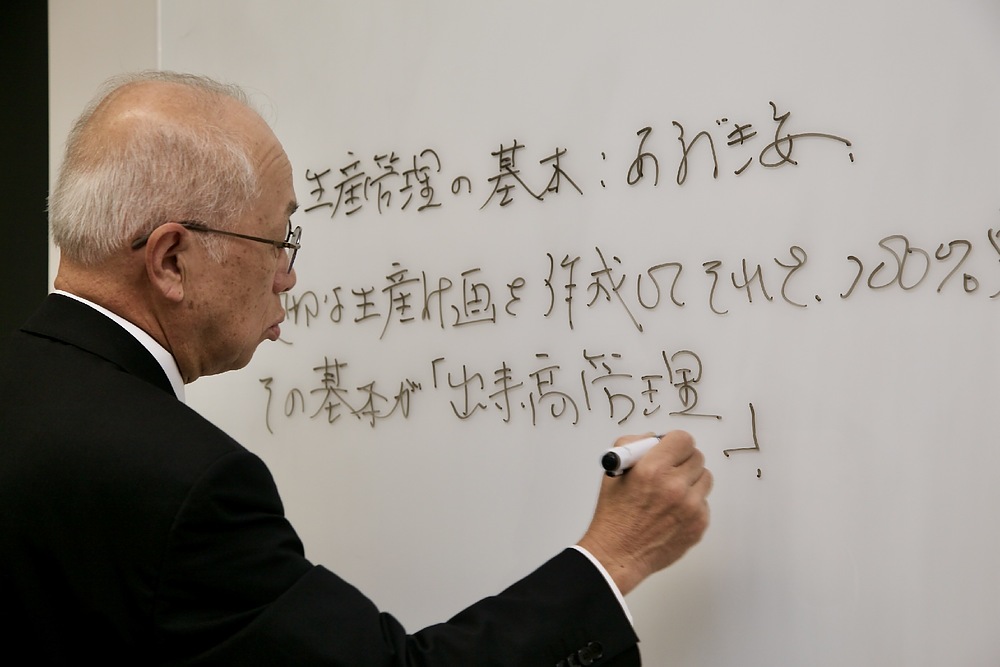 生産管理の基本：あるべき姿.
な生産計画を作成してそれを、100%
その基本が「出来高管理」.